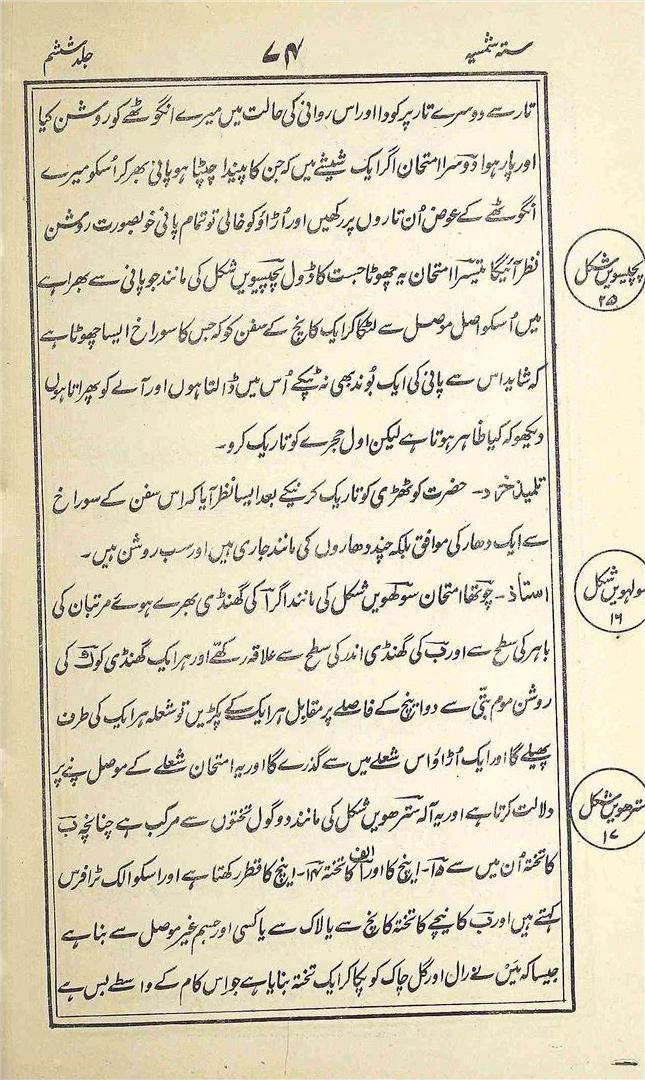 ستہ شمسیہ
۷۴
جلد ششم
تار سے دوسرے تار پر کودا اور اس روانی کی حالت میں میرے انگوٹھے کو روشن کیا
اور پار ہوا دوسرا امتحان اگر ایک شیشے میں کہ جن کا پیندا چپٹا ہو پانی بھر کر اُسکو میرے
انگوٹھے کے عوض اُن تاروں پر رکھیں اور اُڑاؤ کو خالی تو تمام پانی خوبصورت روشن
نظر آئیگا تیسرا امتحان یہ چھوٹا جست کا ڈول پچیسویں شکل کی مانند جو پانی سے بھرا ہے
میں اُسکو اصل موصل سے لٹکا کر ایک کانچ کے سفن کو کہ جس کا سوراخ ایسا چھوٹا ہے
کہ شاید اس سے پانی کی ایک بُوند بھی نہ ٹپکے اُس میں ڈالتا ہوں اور آلے کو پھراتا ہوں
دیکھو کہ کیا ظاہر ہوتا ہے لیکن اول حجرے کو تاریک کرو۔
تلمیذ خرد۔ حضرت کوٹھڑی کو تاریک کرنیکے بعد ایسا نظر آیا کہ اس سفن کے سوراخ
سے ایک دھار کی موافق بلکہ چند دھاروں کی مانند جاری ہیں اور سب روشن ہیں۔
استاذ۔ چوتھا امتحان سولھویں شکل کی مانند اگر آ کی گھنڈی بھرے ہوئے مرتبان کی
باہر کی سطح سے اور ب کی گھنڈی اندر کی سطح سے علاقہ رکھے اور ہر ایک گھنڈی کو کی
روشن موم بتی سے دو اینچ کے فاصلے پر مقابل ہر ایک کے پکڑیں تو شعلہ ہر ایک کی طرف
پھیلے گا اور ایک اُڑاؤ اس شعلے میں سے گذرے گا اور یہ امتحان شعلے کے موصل پنے پر
دلالت کرتا ہے اور یہ آلہ سترھویں شکل کی مانند دو گول تختوں سے مرکب ہے چنانچہ ب
کا تختہ اُن میں سے ۱۵۔ اینچ کا اور الف کا تختہ ۱۴۔ اینچ کا قطر رکھتا ہے اور اسکو الک ٹرافرس
کہتے ہیں اور ب کا نیچے کا تختہ کانچ سے یا لاک سے یا کسی اور جسم غیر موصل سے بنا ہے
جیسا کہ میں نے رال اور گل چاک کو پکا کر ایک تختہ بنایا ہے جو اس کام کے واسطے بس ہے
پچیسویں شکل
۲۵
سولہویں شکل
۱۶
سترھویں شکل
۱۷